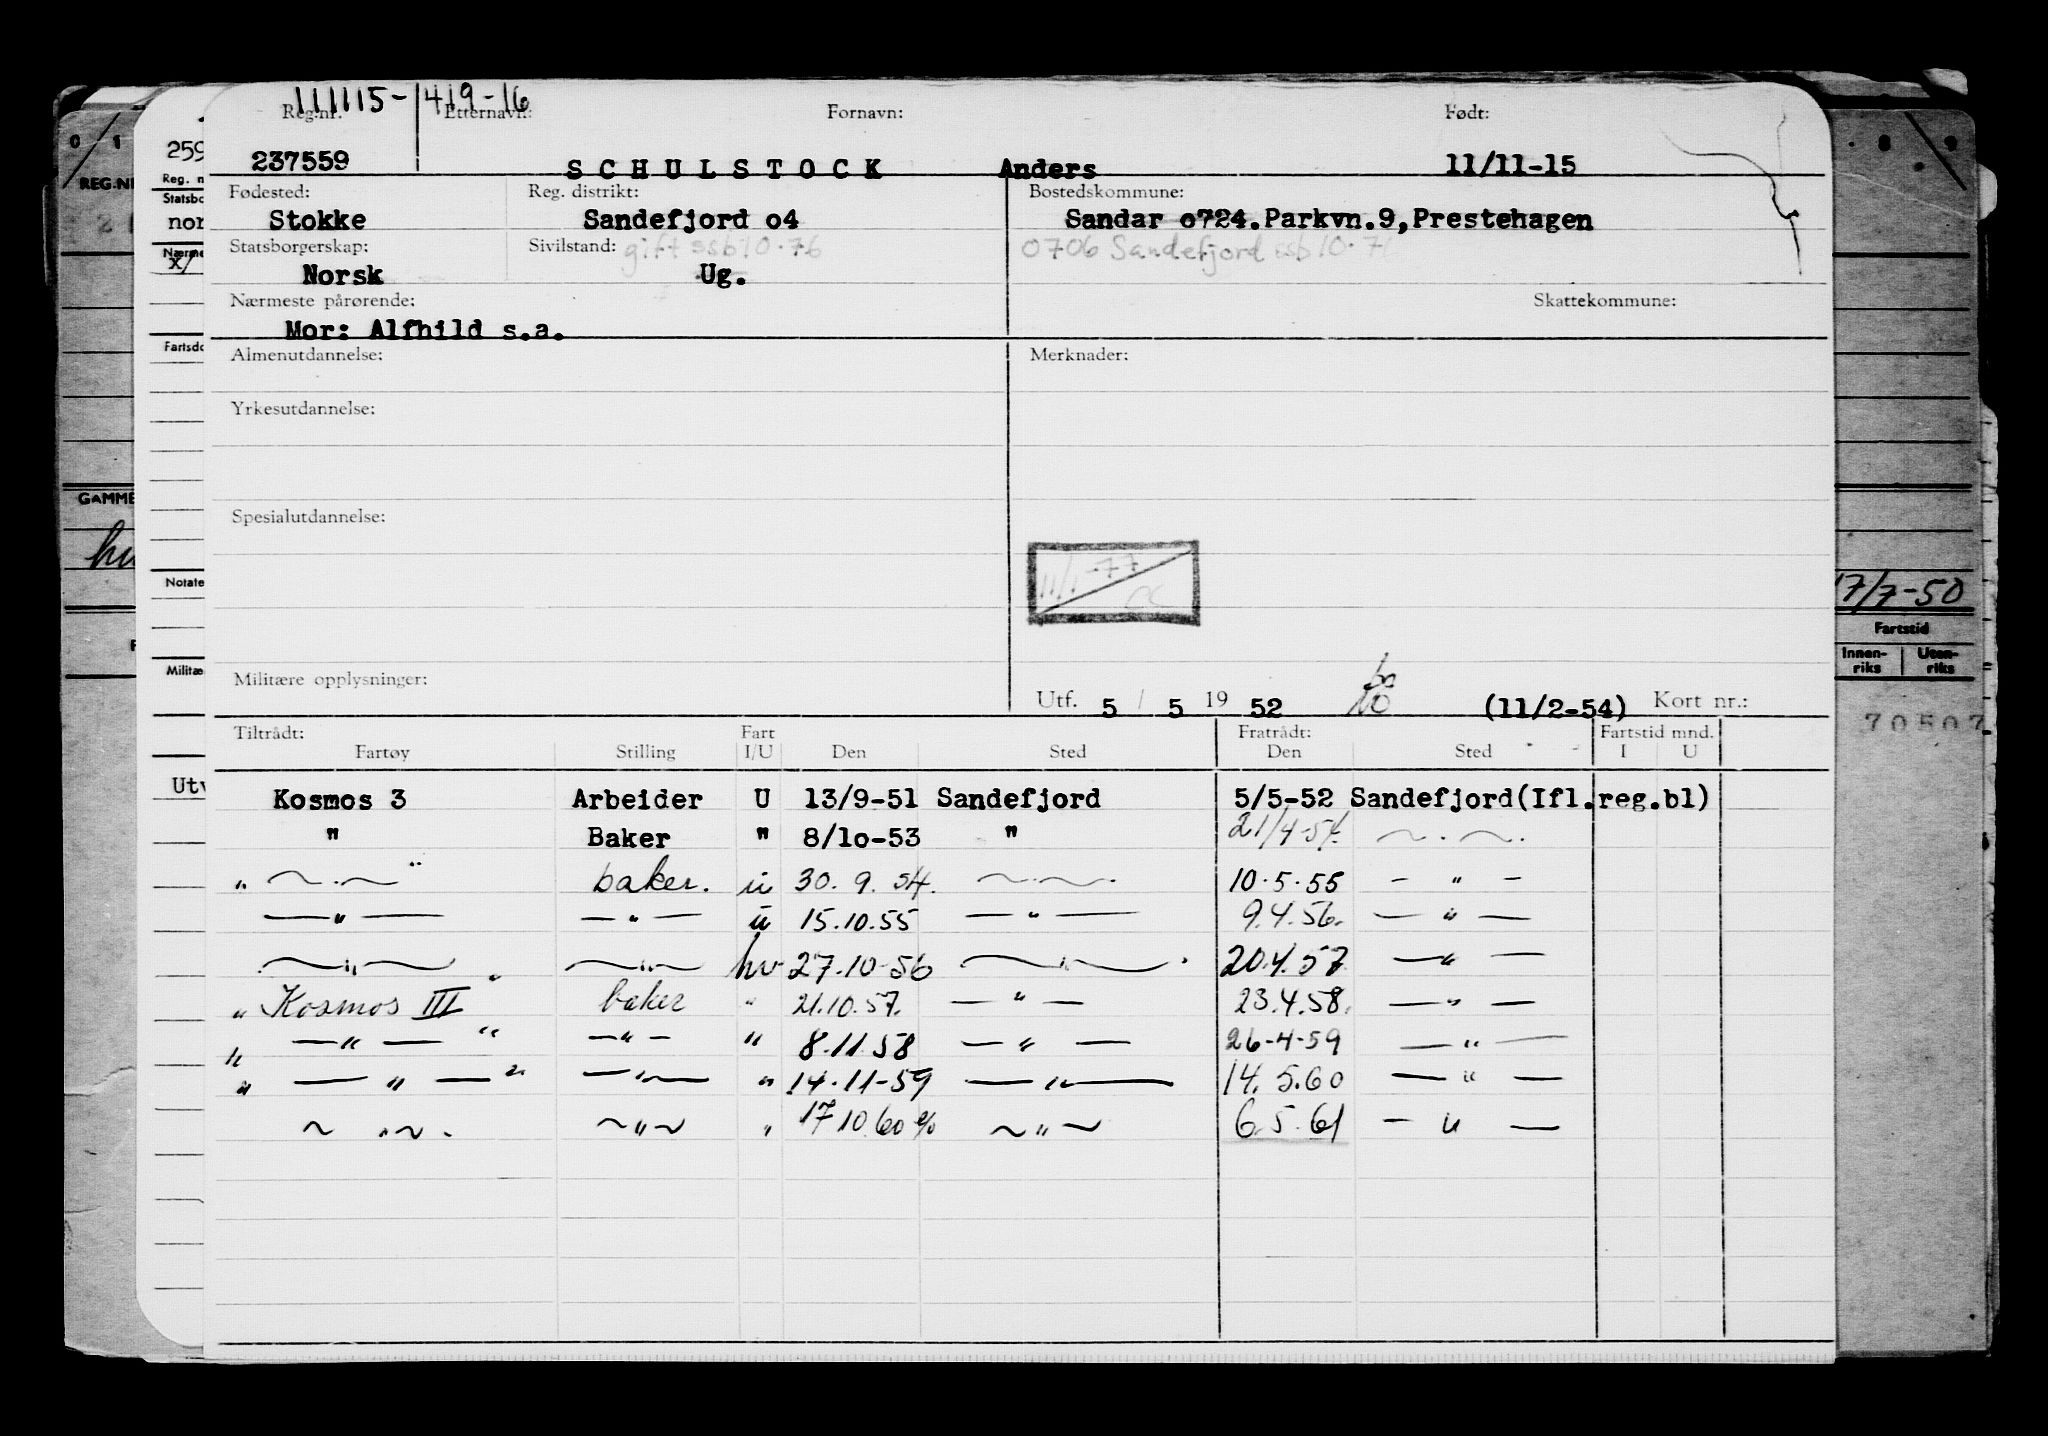 111115-1419-16
Reg.nr. Etternavn: Fornavn: Født:
237559 SCHULSTOCK Anders 11/11-15
Fødested: Reg. distrikt: Bostedskommune:
Stokke Sandefjord o4 Sandar o724.Parkvn.9,Prestehagen
Statsborgerskap: Sivilstand: gift ssb 10.76 0706 Sandefjord ssb 10.76
Norsk Ug.
Nærmeste pårørende: Skattekommune:
Mor: Alfhild s.a.
Almenutdannelse: Merknader:
Yrkesutdannelse:
Spesialutdannelse:
11/1-77
Militære opplysninger:
Utf. 5 / 5 19 52 (11/2-54) Kort nr.:
Tiltrådt: Fart Fratrådt: Fartstid mnd.
Fartøy Stilling I/U Den Sted Den Sted I U
Kosmos 3 Arbeider U 13/9-51 Sandefjord 5/5-52 Sandefjord(Ifl.reg.bl)
" Baker " 8/1o-53 " 21/4-54. ~ . ~.
" ~.~ " baker. u 30.9.54. ~.~. 10.5.55 - " -
— " — — " — u 15.10.55 — " — 9.4.56. — " —
— " — — " — hv 27.10-56 — " — 20.4.57 — " —
" Kosmos III " baker " 21.10.57. — " — 23.4.58. — " —
" — " — " — " — " 8.11.58 — " — 26-4-59 — " —
" — " — " — " — " 14.11-59 — " — 14.5.60 — " —
~ " ~ . ~ " ~ " 17.10.60 ~ " ~ 6.5.61 — " —
0 1
REG.NR
GAMME
259
Reg. n
Statsbo
nor
Nærme
x/
Fartsdo
Notate
Militæ
Utv
8 9
17/7-50
Fartstid
Innen- Uten-
riks riks
70507